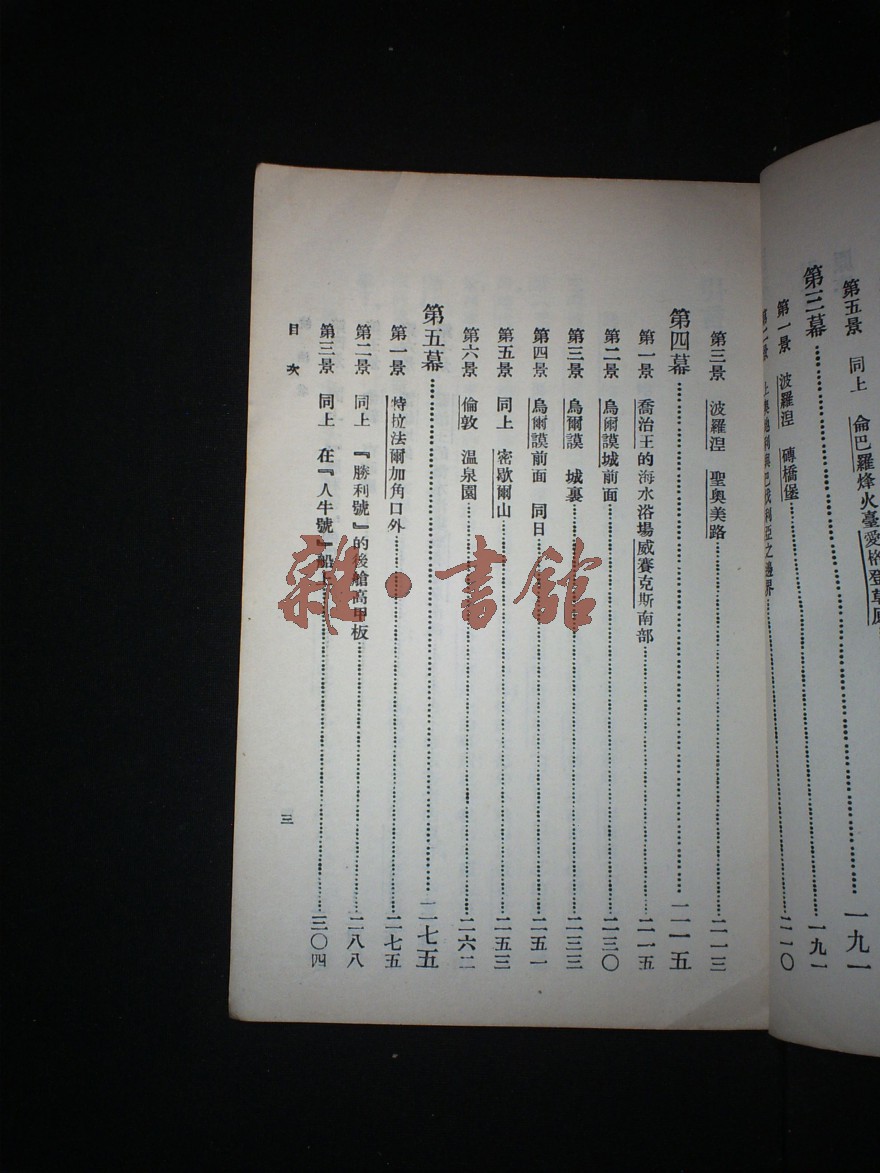 第五景 同上 侖巴羅烽火臺愛格登草原……一九一
第三幕……一九一
第一景 波羅涅 磚橋堡……二一〇
第二景 上奧地利與巴威利亞之邊界……
第三景 波羅涅 聖奧美路……二一三
第四幕……二一五
第一景 喬治王的海水浴場威賽克斯南部……二一五
第二景 烏爾謨城前面……二三〇
第三景 烏爾謨 城裏……二三三
第四景 烏爾謨前面 同日……二五一
第五景 同上 密歇爾山……二五三
第六景 倫敦 温泉園……二六二
第五幕……二七五
第一景 特拉法爾加角口外……二七五
第二景 同上 『勝利號』的後艙高甲板……二八八
第三景 同上 在『人牛號』船上……三〇四
目次
三
雜·書館